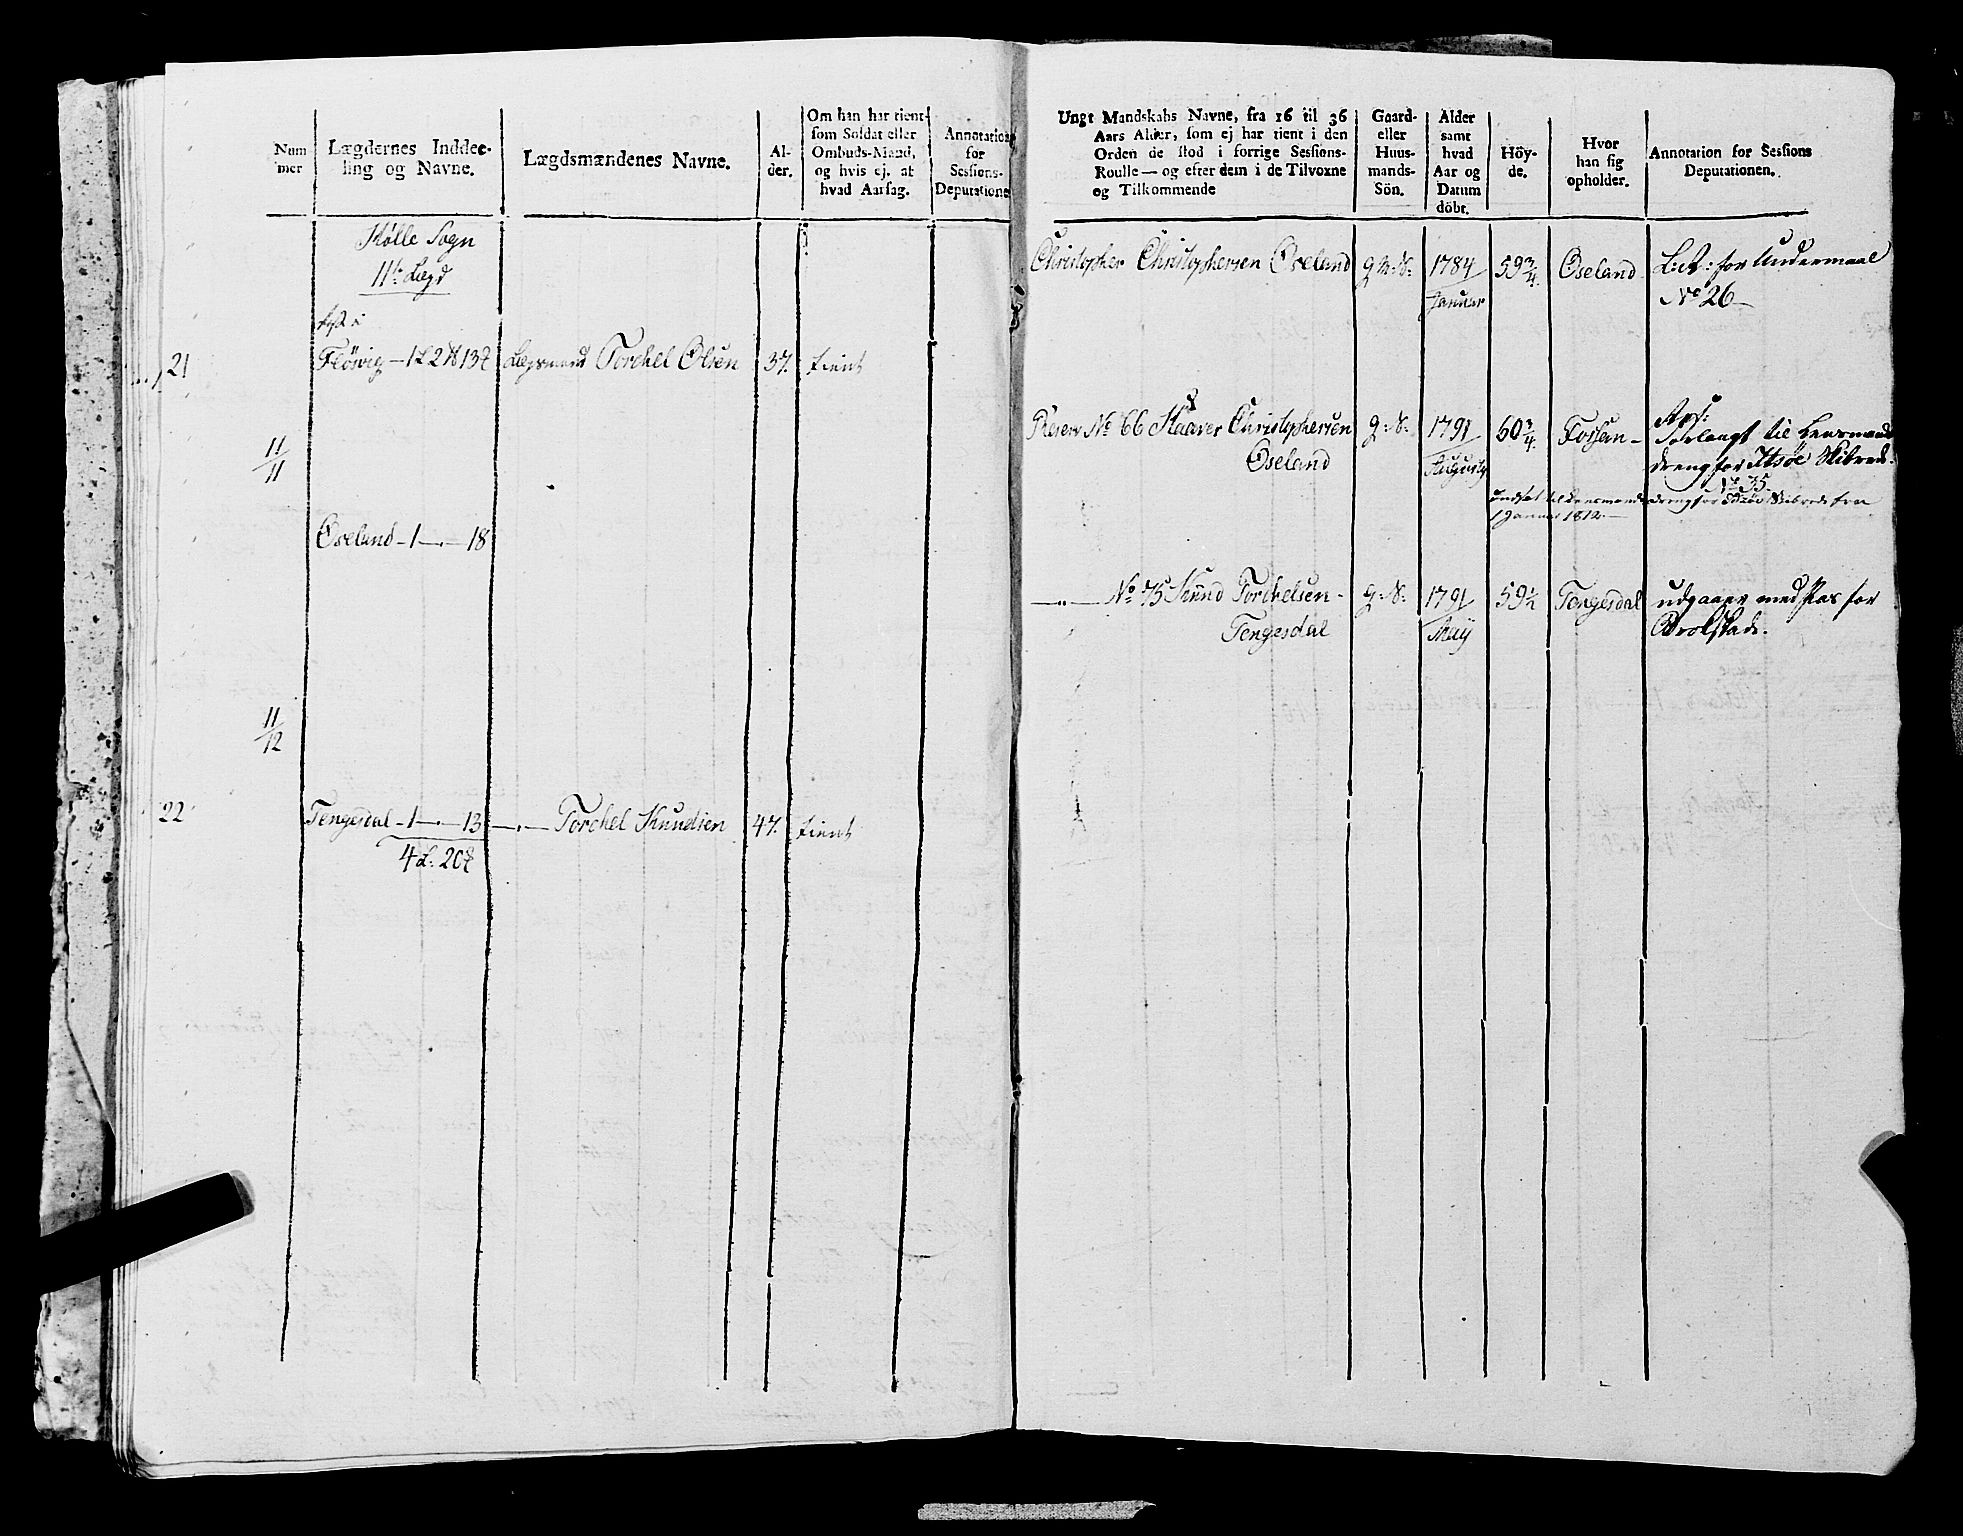 Num
mer
Lægdernes Inddee-
ling og Navne.
Lægdsmændenes Navne.
Al-
der.
Om han har tient
som Soldat eller
Ombuds-Mand,
og hvis ej, af
hvad Aarsag.
Annotation
for
Sessions-
Deputatione
Holle Sogn
11te Lægd
21
Fløsvig - 1 L 2 13
Lægsmand Torchel Olsen
37.
tient
11
11
Øseland - 1 —.— 18
11
12
22
Tengesdal - 1 —.— 13
—.— Torchel Knudsen
47.
tient
4 L. 20
Ungt Mandskabs Navne, fra 16 til 36
Aars Alder, som ej har tient i den
Orden de stod i forrige Sessions-
Roulle — og efter dem i de Tilvoxne
og Tilkommende
Gaard-
eller
Huus-
mands-
Sön.
Alder
samt
hvad
Aar og
Datum
döbt.
Höy-
de.
Hvor
han sig
opholder.
Annotation for Sessions
Deputationen.
Christopher Christophersen Øseland
1784
Januar
59 3/4
Øseland
for Undermaal
No 26
Reserv No 66 Haaver Christophersen
Øseland
G: S:
1791
August
60 3/4
Forsan -
til Lensmands
dreng for Skibrede.
No 35
indsat til Lensmands dreng for Skibrede fra
1 Januar 1812
—.— No 75 Knud Torchelsen -
Tengesdal
G: S:
1791
Maÿ
59 1/2
Tengesdal
udgaaer med Pas for